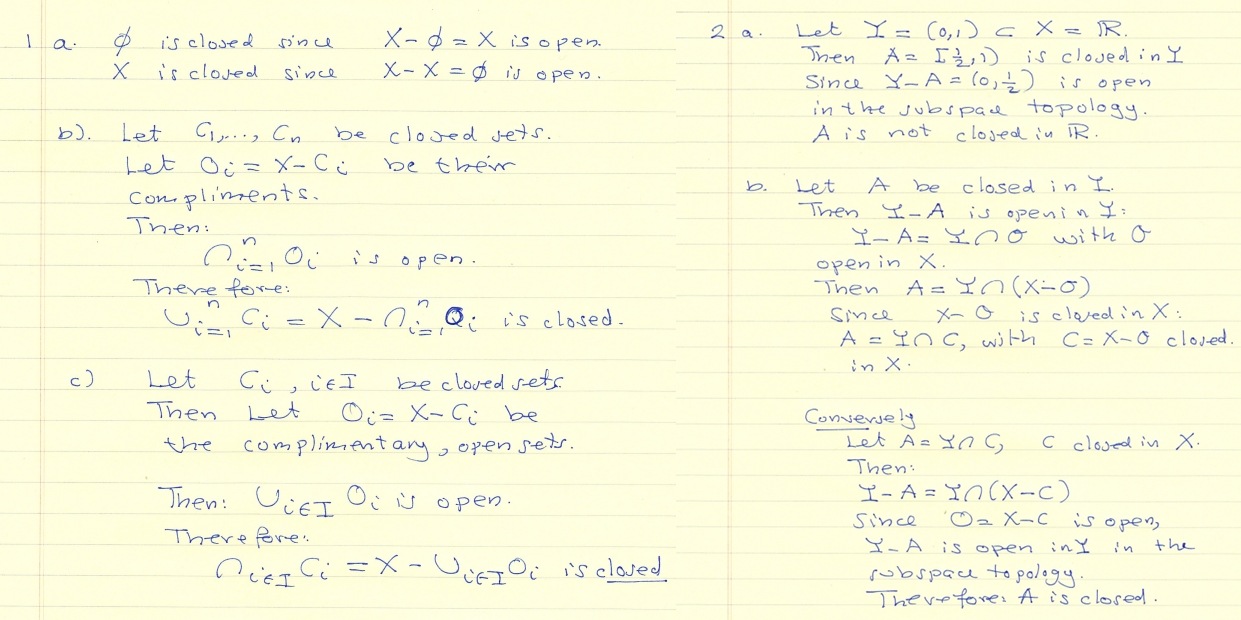 1 a. ∅ is closed since X-∅ = X is open.
X is closed since X-X = ∅ is open.
b). Let C₁,..., Cₙ be closed sets.
Let Oᵢ = X-Cᵢ be their
compliments.
Then:
∩ᵢ₌₁ⁿ Oᵢ is open.
Therefore:
∪ᵢ₌₁ⁿ Cᵢ = X - ∩ᵢ₌₁ⁿ Oᵢ is closed.
c) Let Cᵢ, i∈I be closed sets
Then Let Oᵢ = X-Cᵢ be
the complimentary, open sets.
Then: ∪_{i∈I} Oᵢ is open.
Therefore:
∩_{i∈I} Cᵢ = X - ∪_{i∈I} Oᵢ is closed
2 a. Let Y = (0,1) ⊂ X = ℝ.
Then A = [½,1) is closed in Y
Since Y-A = (0,½) is open
in the subspace topology.
A is not closed in ℝ.
b. Let A be closed in Y.
Then Y-A is open in Y:
Y-A = Y∩O with O
open in X.
Then A = Y∩(X-O)
Since X-O is closed in X:
A = Y∩C, with C = X-O closed.
in X.
Conversely
Let A = Y∩C, C closed in X.
Then:
Y-A = Y∩(X-C)
Since O = X-C is open,
Y-A is open in Y in the
subspace topology.
Therefore: A is closed.